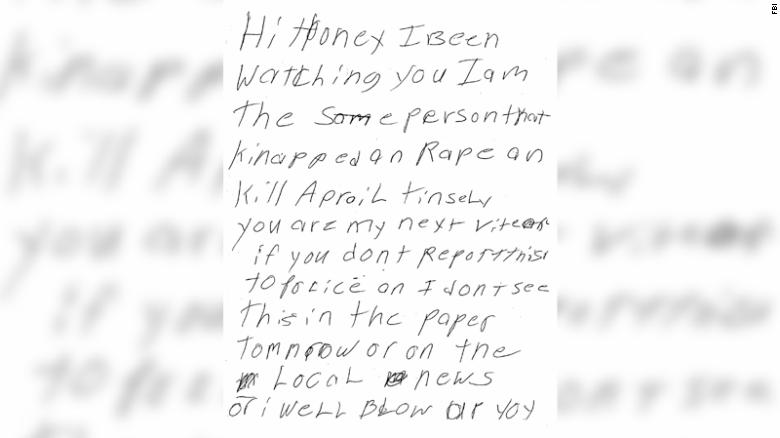 Hi Honey I Been
Watching you I am
The Same person that
kinapped an Rape an
Kill Aproil Tinsely
you are my next
if you dont Report this
To police an I dont see
This in the paper
Tomnrow or on the
Local news
or i well Blow up
FBI